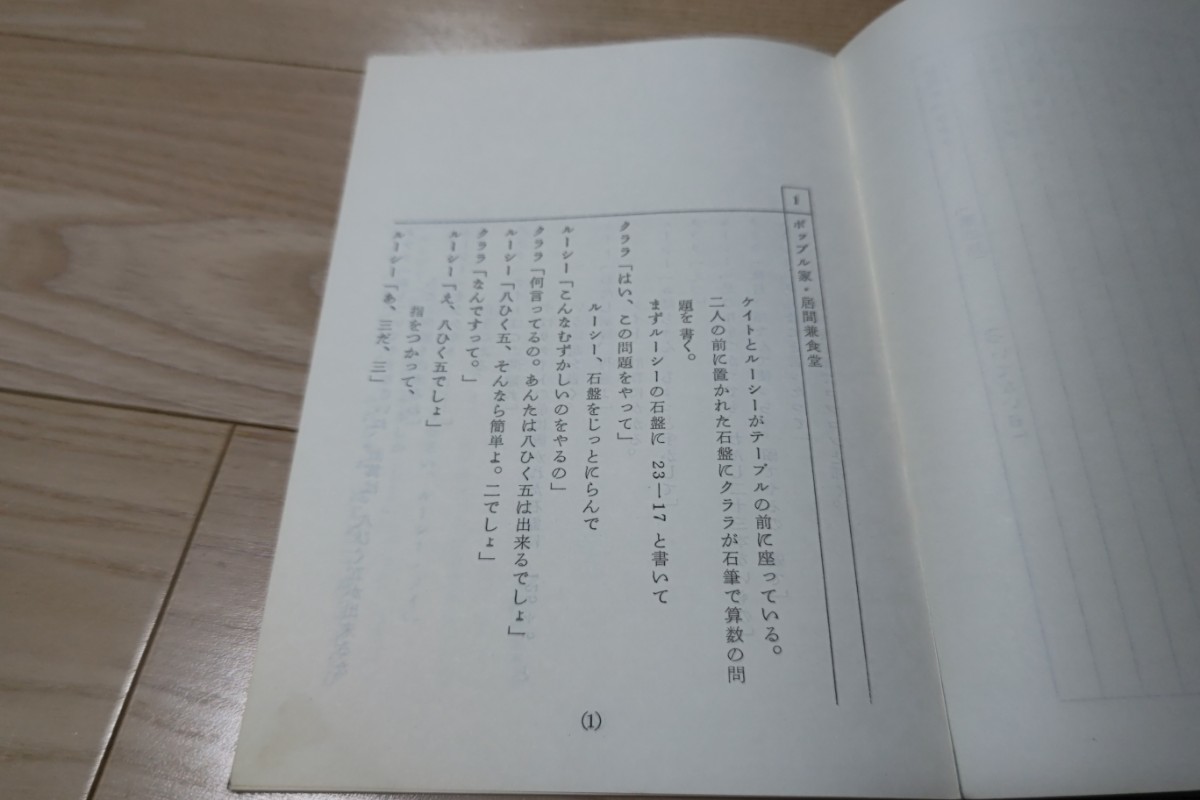 1 ポップル家・居間兼食堂
ケイトとルーシーがテーブルの前に座っている。
二人の前に置かれた石盤にクララが石筆で算数の問
題を書く。
まずルーシーの石盤に 23―17 と書いて
クララ「はい、この問題をやって」
ルーシー、石盤をじっとにらんで
ルーシー「こんなむずかしいのをやるの」
クララ「何言ってるの。あんたは八ひく五は出来るでしょ」
ルーシー「八ひく五、そんなら簡単ょ。二でしょ」
クララ「なんですって。」
ルーシー「え、八ひく五でしょ」
指をつかって、
ルーシー「あ、三だ、三」
(1)